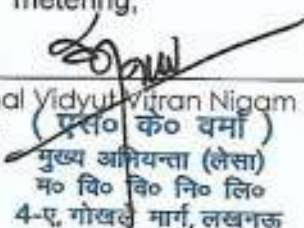 metering,
al Vidyut Vitran Nigam
( एस० के० वर्मा )
मुख्य अभियन्ता (लेसा)
म० वि० वि० नि० लि०
4-ए, गोखले मार्ग, लखनऊ